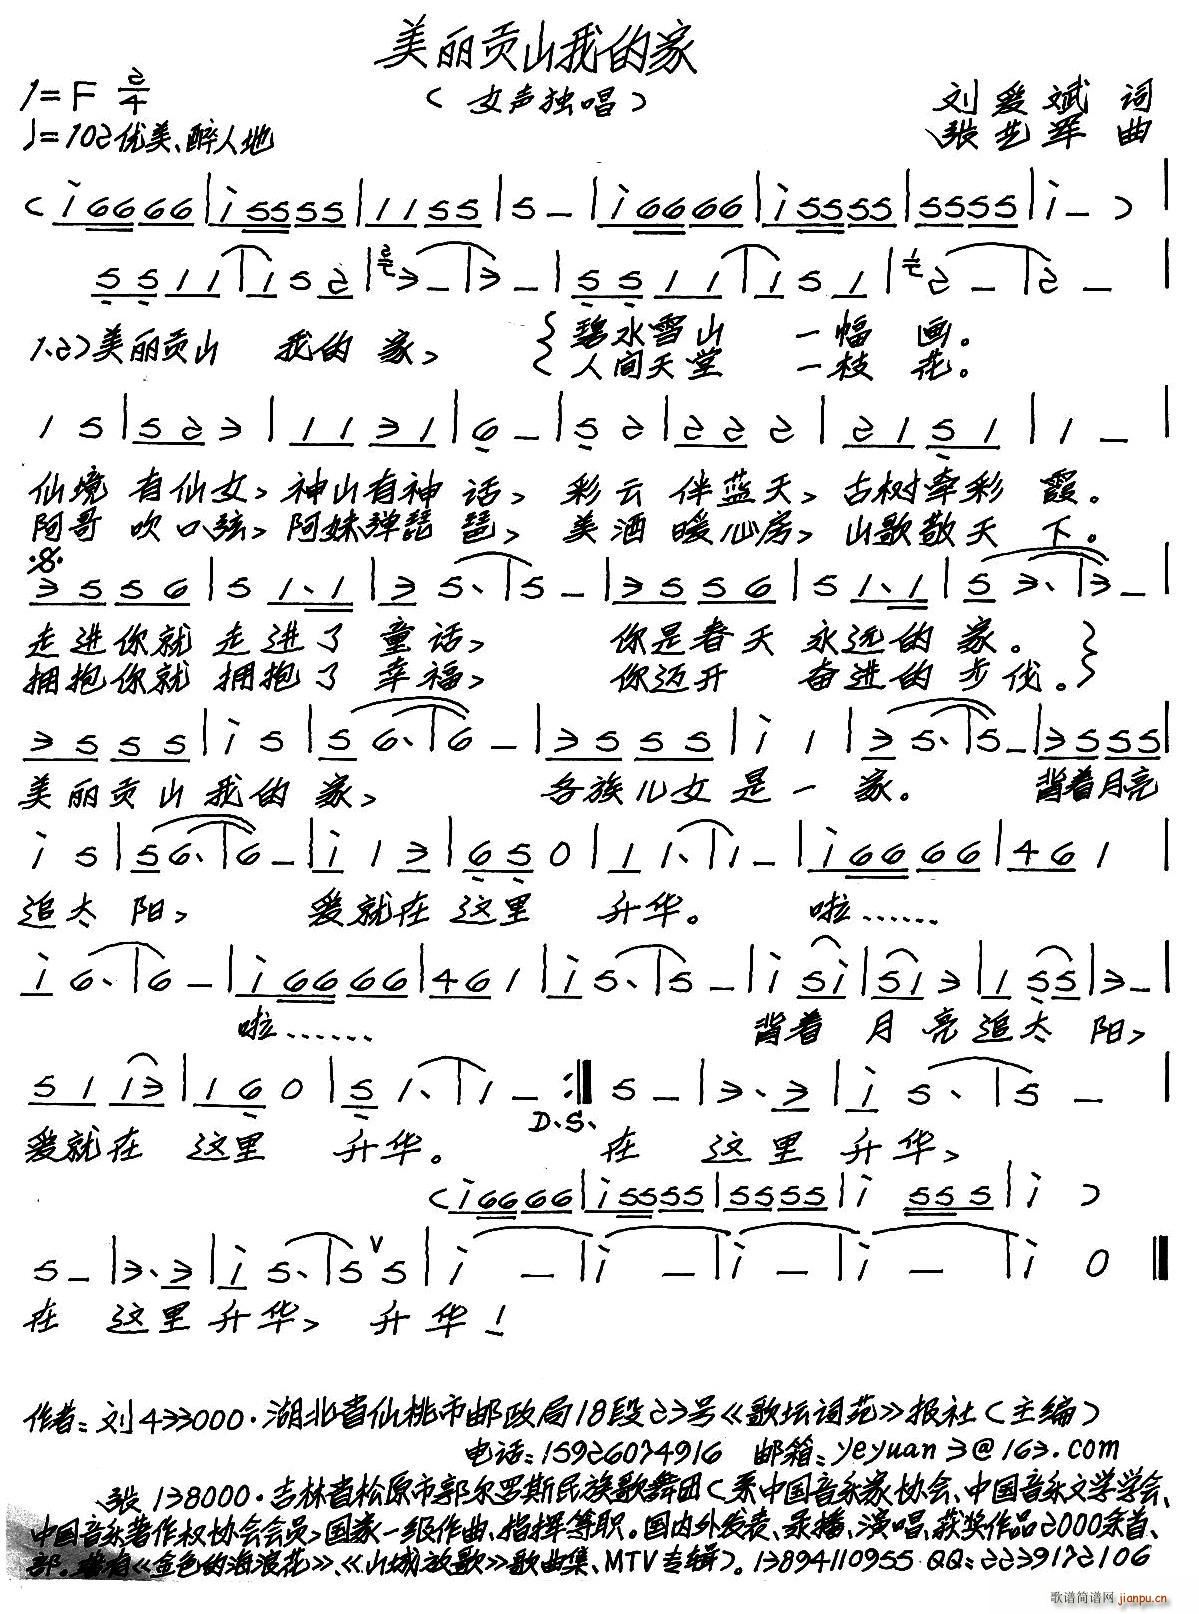 美丽贡山我的家
1=F 2/4
（女声独唱）
刘爱斌 词
♩=102优美、醉人地
张艺军 曲
（i6666|i5555|1155|5－|i6666|i5555|5555|i－）|
5511|152|3－|3－|5511|151|2－|2－|
1.2）美丽贡山 我的 家，
碧水雪山 一幅 画。
人间天堂 一枝 花。
1 5|523|1131|6－|52|222|2151|1－|
仙境 有仙女，神山有神 话，彩云 伴蓝天，古树牵彩 霞。
阿哥 吹口弦，阿妹弹琵 琶，美酒 暖心房，山歌敬天 下。
3556|51.1|35.|5－|3556|51.1|53.|3－|
走进你就 走进了 童话， 你是春天 永远的 家。
拥抱你就 拥抱了 幸福， 你迈开 奋进的 步伐。
3555|i5|56.|6－|3555|i1|35.|5－|3555|
美丽贡山我的 家， 各族儿女是一 家。 背着月亮
i5|56.|6－|i13|650|11.|1－|i6666|461|
追太 阳， 爱就在 这里 升华。 啦……
i6.|6－|i6666|461|i5.|5－|i5i|5i3|155|3－|
啦…… 背着 月 亮追太 阳，
51i3|160|51.|1－:‖5－|3.3|i5.|5－|
D.S.
爱就在 这里 升华。 在 这里 升华，
（i6666|i5555|5555|i555|i）
5－|3.3|i5.|5 5|i－|i－|i－|i－|i0‖
在 这里 升华， 升华！
作者：刘433000·湖北省仙桃市邮政局18段23号《歌坛词苑》报社（主编）
电话：15926074916 邮箱：yeyuan3@163.com
张138000·吉林省松原市郭尔罗斯民族歌舞团（系中国音乐家协会、中国音乐文学学会、
中国音乐著作权协会会员，国家一级作曲、指挥等职。国内外发表、录播、演唱、获奖作品2000余首、
部。有《金色的海浪花》、《山城放歌》歌曲集、MTV专辑）。13894110955 QQ：2239172106
歌谱简谱网
jianpu.cn